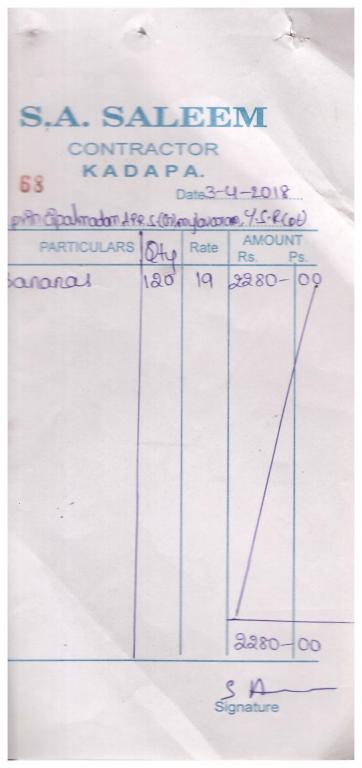 S.A. SALEEM
CONTRACTOR
KADAPA.
68
Date 3-4-2018
madam
PARTICULARS Qty Rate AMOUNT
Rs. Ps.
Bananas 120 19 2280-00
2280-00
S A
Signature